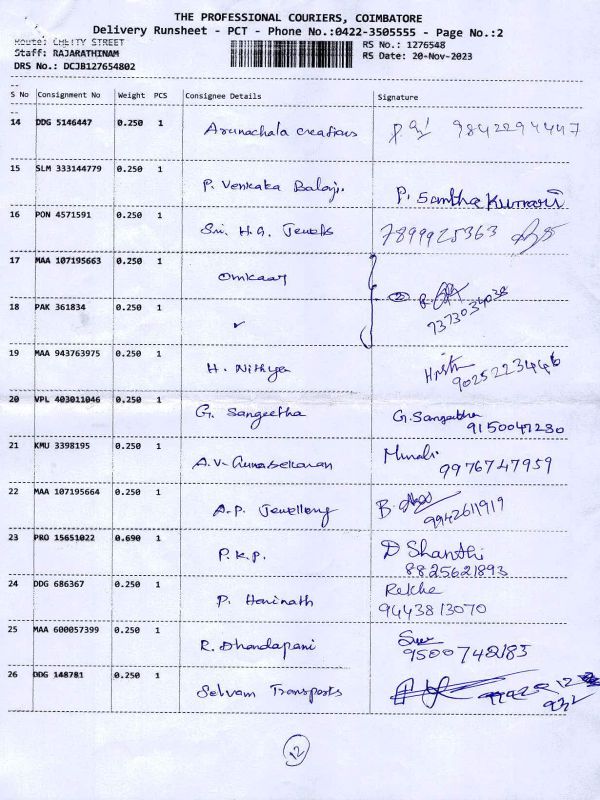 THE PROFESSIONAL COURIERS, COIMBATORE
Delivery Runsheet - PCT - Phone No.:0422-3505555 - Page No.:2
Route: CHETTY STREET
RS No.: 1276548
Staff: RAJARATHINAM
RS Date: 20-Nov-2023
DRS No.: DCJB127654802
S No Consignment No Weight PCS Consignee Details Signature
14 DDG 5146447 0.250 1 Arunachala creations 9842294447
15 SLM 333144779 0.250 1 P. Venkaka Balaji. P. Santha Kumari
16 PON 4571591 0.250 1 Sri. H.G. Jewels 7899925363
17 MAA 107195663 0.250 1 Omkaar
18 PAK 361834 0.250 1 ✓ 7373034038
19 MAA 943763975 0.250 1 H. Nithya
9025223446
20 VPL 403011046 0.250 1 G. Sangeetha G. Sangeetha
9150047280
21 KMU 3398195 0.250 1 A.V. Gunasekaran Murali
9976747959
22 MAA 107195664 0.250 1 A.P. Jewellery B.
9942611919
23 PRO 15651022 0.690 1 P.K.P. D Shanthi
8825621893
24 DDG 686367 0.250 1 P. Harinath Rekha
9443813070
25 MAA 600057399 0.250 1 R. Dhandapani
9500742183
26 DDG 148781 0.250 1 Selvam Transports
12